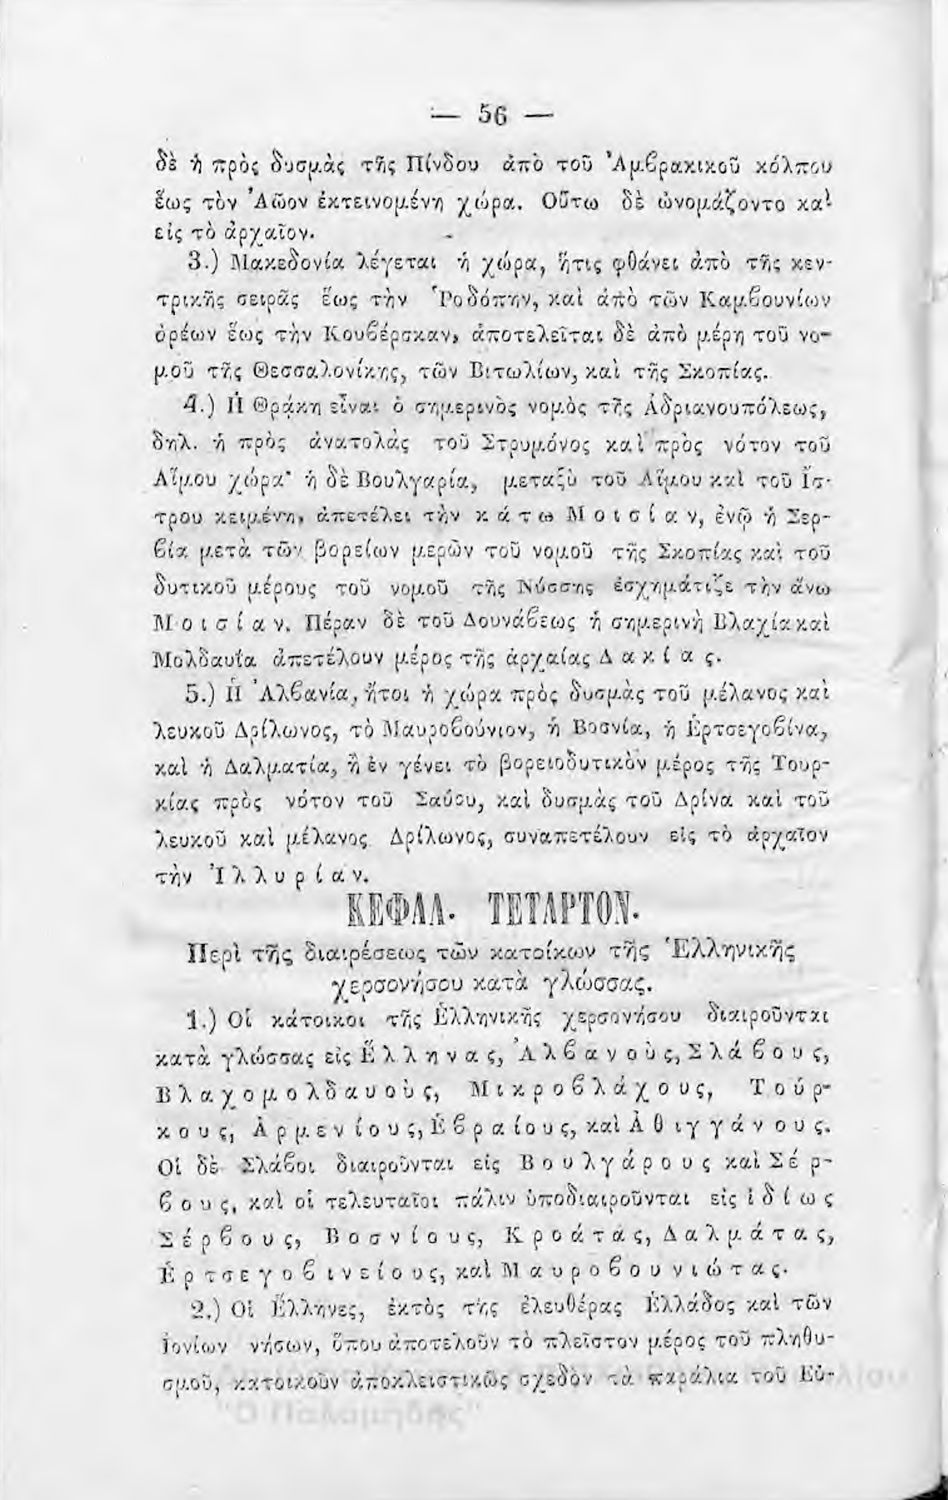 — 56 —
δὲ ἡ πρὸς δυσμὰς τῆς Πίνδου ἀπὸ τοῦ Ἀμβρακικοῦ κόλπου
ἕως τὸν Ἀῶον ἐκτεινομένη χώρα. Οὕτω δὲ ὠνομάζοντο καὶ
εἰς τὸ ἀρχαῖον.
3.) Μακεδονία λέγεται ἡ χώρα, ἥτις φθάνει ἀπὸ τῆς κεν-
τρικῆς σειρᾶς ἕως τὴν Ῥοδόπην, καὶ ἀπὸ τῶν Καμβουνίων
ὀρέων ἕως τὴν Κουβέρσκαν, ἀποτελεῖται δὲ ἀπὸ μέρη τοῦ νο-
μοῦ τῆς Θεσσαλονίκης, τῶν Βιτωλίων, καὶ τῆς Σκοπίας.
4.) Ἡ Θράκη εἶναι ὁ σημερινὸς νομὸς τῆς Ἀδριανουπόλεως,
δηλ. ἡ πρὸς ἀνατολὰς τοῦ Στρυμόνος καὶ πρὸς νότον τοῦ
Αἵμου χώρα· ἡ δὲ Βουλγαρία, μεταξὺ τοῦ Αἵμου καὶ τοῦ Ἴσ-
τρου κειμένη, ἀπετέλει τὴν κάτω Μοισίαν, ἐνῷ ἡ Σερ-
βία μετὰ τῶν βορείων μερῶν τοῦ νομοῦ τῆς Σκοπίας καὶ τοῦ
δυτικοῦ μέρους τοῦ νομοῦ τῆς Νύσσης ἐσχημάτιζε τὴν ἄνω
Μοισίαν. Πέραν δὲ τοῦ Δουνάβεως ἡ σημερινὴ Βλαχία καὶ
Μολδαυΐα ἀπετέλουν μέρος τῆς ἀρχαίας Δακίας.
5.) Ἡ Ἀλβανία, ἤτοι ἡ χώρα πρὸς δυσμὰς τοῦ μέλανος καὶ
λευκοῦ Δρίλωνος, τὸ Μαυροβούνιον, ἡ Βοσνία, ἡ Ἐρτσεγοβίνα,
καὶ ἡ Δαλματία, ἢ ἐν γένει τὸ βορειοδυτικὸν μέρος τῆς Τουρ-
κίας πρὸς νότον τοῦ Σαύου, καὶ δυσμὰς τοῦ Δρίνα καὶ τοῦ
λευκοῦ καὶ μέλανος Δρίλωνος, συναπετέλουν εἰς τὸ ἀρχαῖον
τὴν Ἰλλυρίαν.
ΚΕΦΑΛ. ΤΕΤΑΡΤΟΝ.
Περὶ τῆς διαιρέσεως τῶν κατοίκων τῆς Ἑλληνικῆς
χερσονήσου κατὰ γλώσσας.
1.) Οἱ κάτοικοι τῆς Ἑλληνικῆς χερσονήσου διαιροῦνται
κατὰ γλώσσας εἰς Ἕλληνας, Ἀλβανοὺς, Σλάβους,
Βλαχομολδαυοὺς, Μικροβλάχους, Τούρ-
κους, Ἀρμενίους, Ἑβραίους, καὶ Ἀθιγγάνους.
Οἱ δὲ Σλάβοι διαιροῦνται εἰς Βουλγάρους καὶ Σέρ-
βους, καὶ οἱ τελευταῖοι πάλιν ὑποδιαιροῦνται εἰς ἰδίως
Σέρβους, Βοσνίους, Κροάτας, Δαλμάτας,
Ἐρτσεγοβινείους, καὶ Μαυροβουνιώτας.
2.) Οἱ Ἕλληνες, ἐκτὸς τῆς ἐλευθέρας Ἑλλάδος καὶ τῶν
Ἰονίων νήσων, ὅπου ἀποτελοῦν τὸ πλεῖστον μέρος τοῦ πληθυ-
σμοῦ, κατοικοῦν ἀποκλειστικῶς σχεδὸν τὰ παράλια τοῦ Εὐ-
"Ο Παλαμήδης"